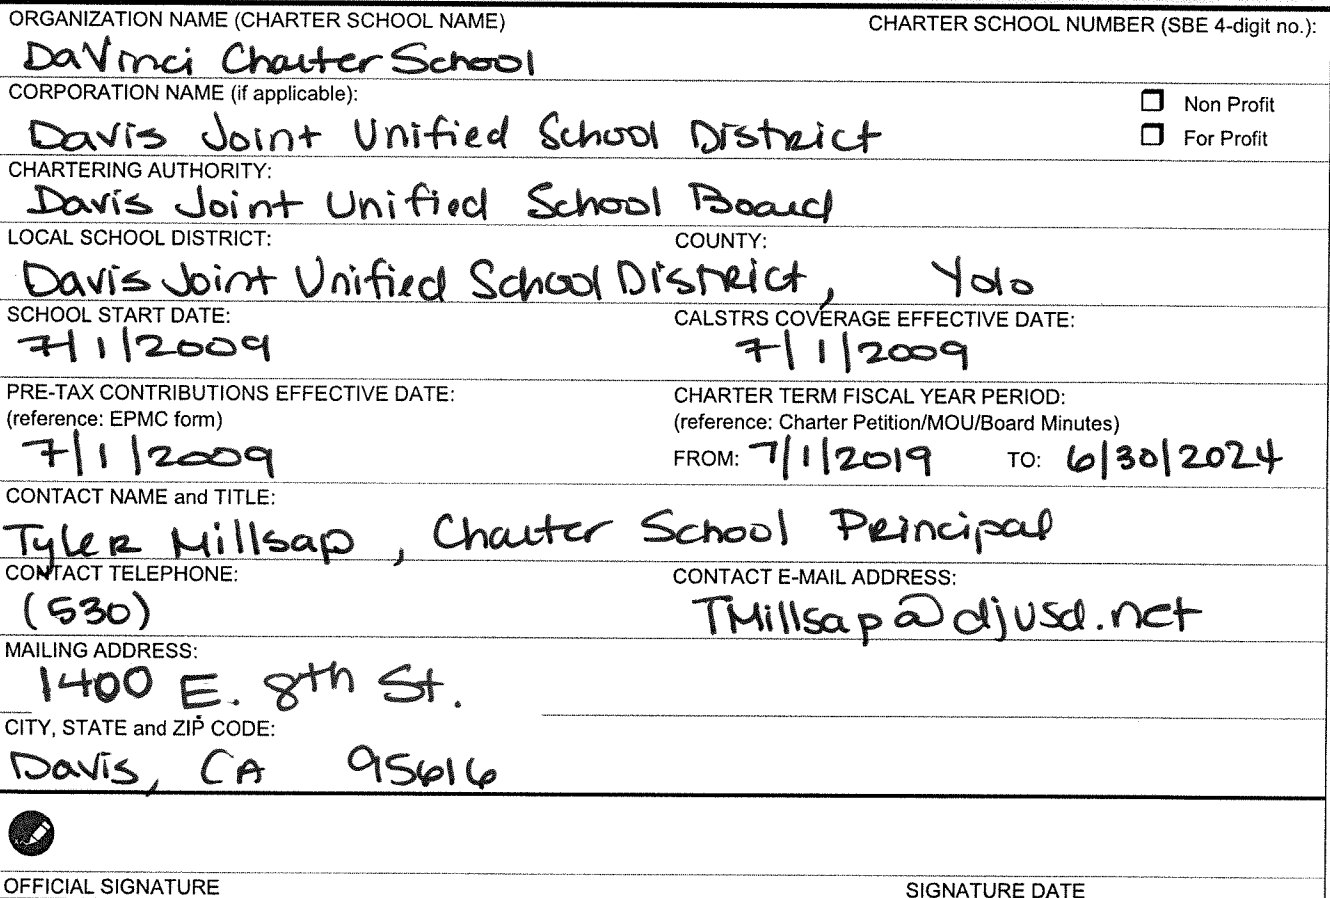 ORGANIZATION NAME (CHARTER SCHOOL NAME) CHARTER SCHOOL NUMBER (SBE 4-digit no.):
DaVinci Charter School
CORPORATION NAME (if applicable): ☐ Non Profit
Davis Joint Unified School District ☐ For Profit
CHARTERING AUTHORITY:
Davis Joint Unified School Board
LOCAL SCHOOL DISTRICT: COUNTY:
Davis Joint Unified School District, Yolo
SCHOOL START DATE: CALSTRS COVERAGE EFFECTIVE DATE:
7/1/2009 7/1/2009
PRE-TAX CONTRIBUTIONS EFFECTIVE DATE: CHARTER TERM FISCAL YEAR PERIOD:
(reference: EPMC form) (reference: Charter Petition/MOU/Board Minutes)
7/1/2009 FROM: 7/1/2019 TO: 6/30/2024
CONTACT NAME and TITLE:
Tyler Millsap, Charter School Principal
CONTACT TELEPHONE: CONTACT E-MAIL ADDRESS:
(530) TMillsap@djusd.net
MAILING ADDRESS:
1400 E. 8th St.
CITY, STATE and ZIP CODE:
Davis, CA 95616
OFFICIAL SIGNATURE SIGNATURE DATE